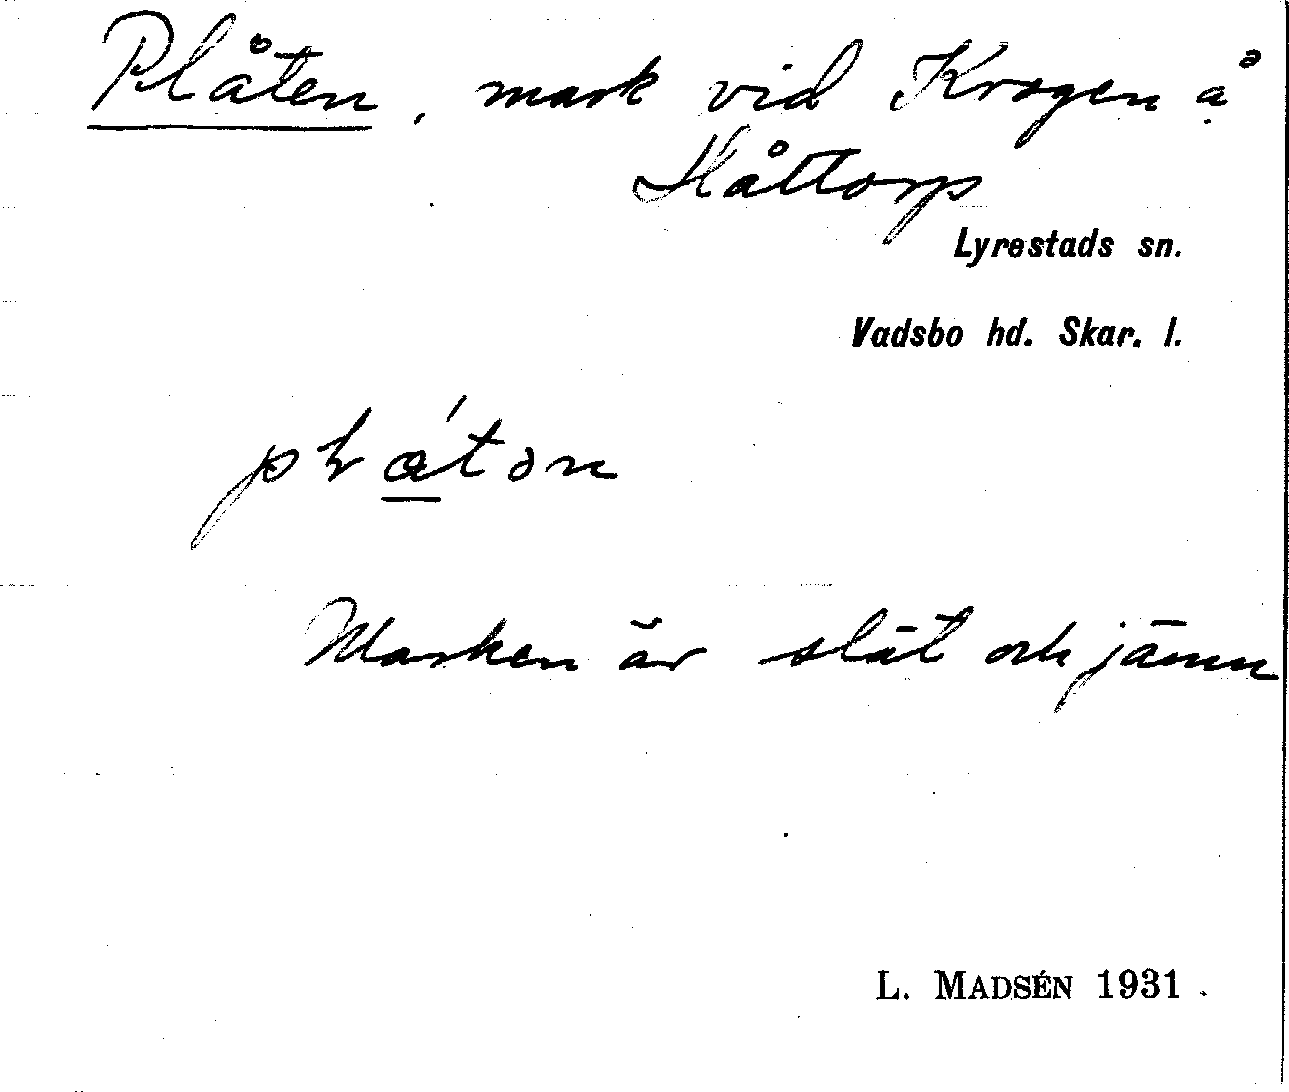 Plåten, mark vid Krogen å
Slåttorp
Lyrestads sn.
Vadsbo hd. Skar. l.
Marken är slät och jämn
L. MADSÉN 1931